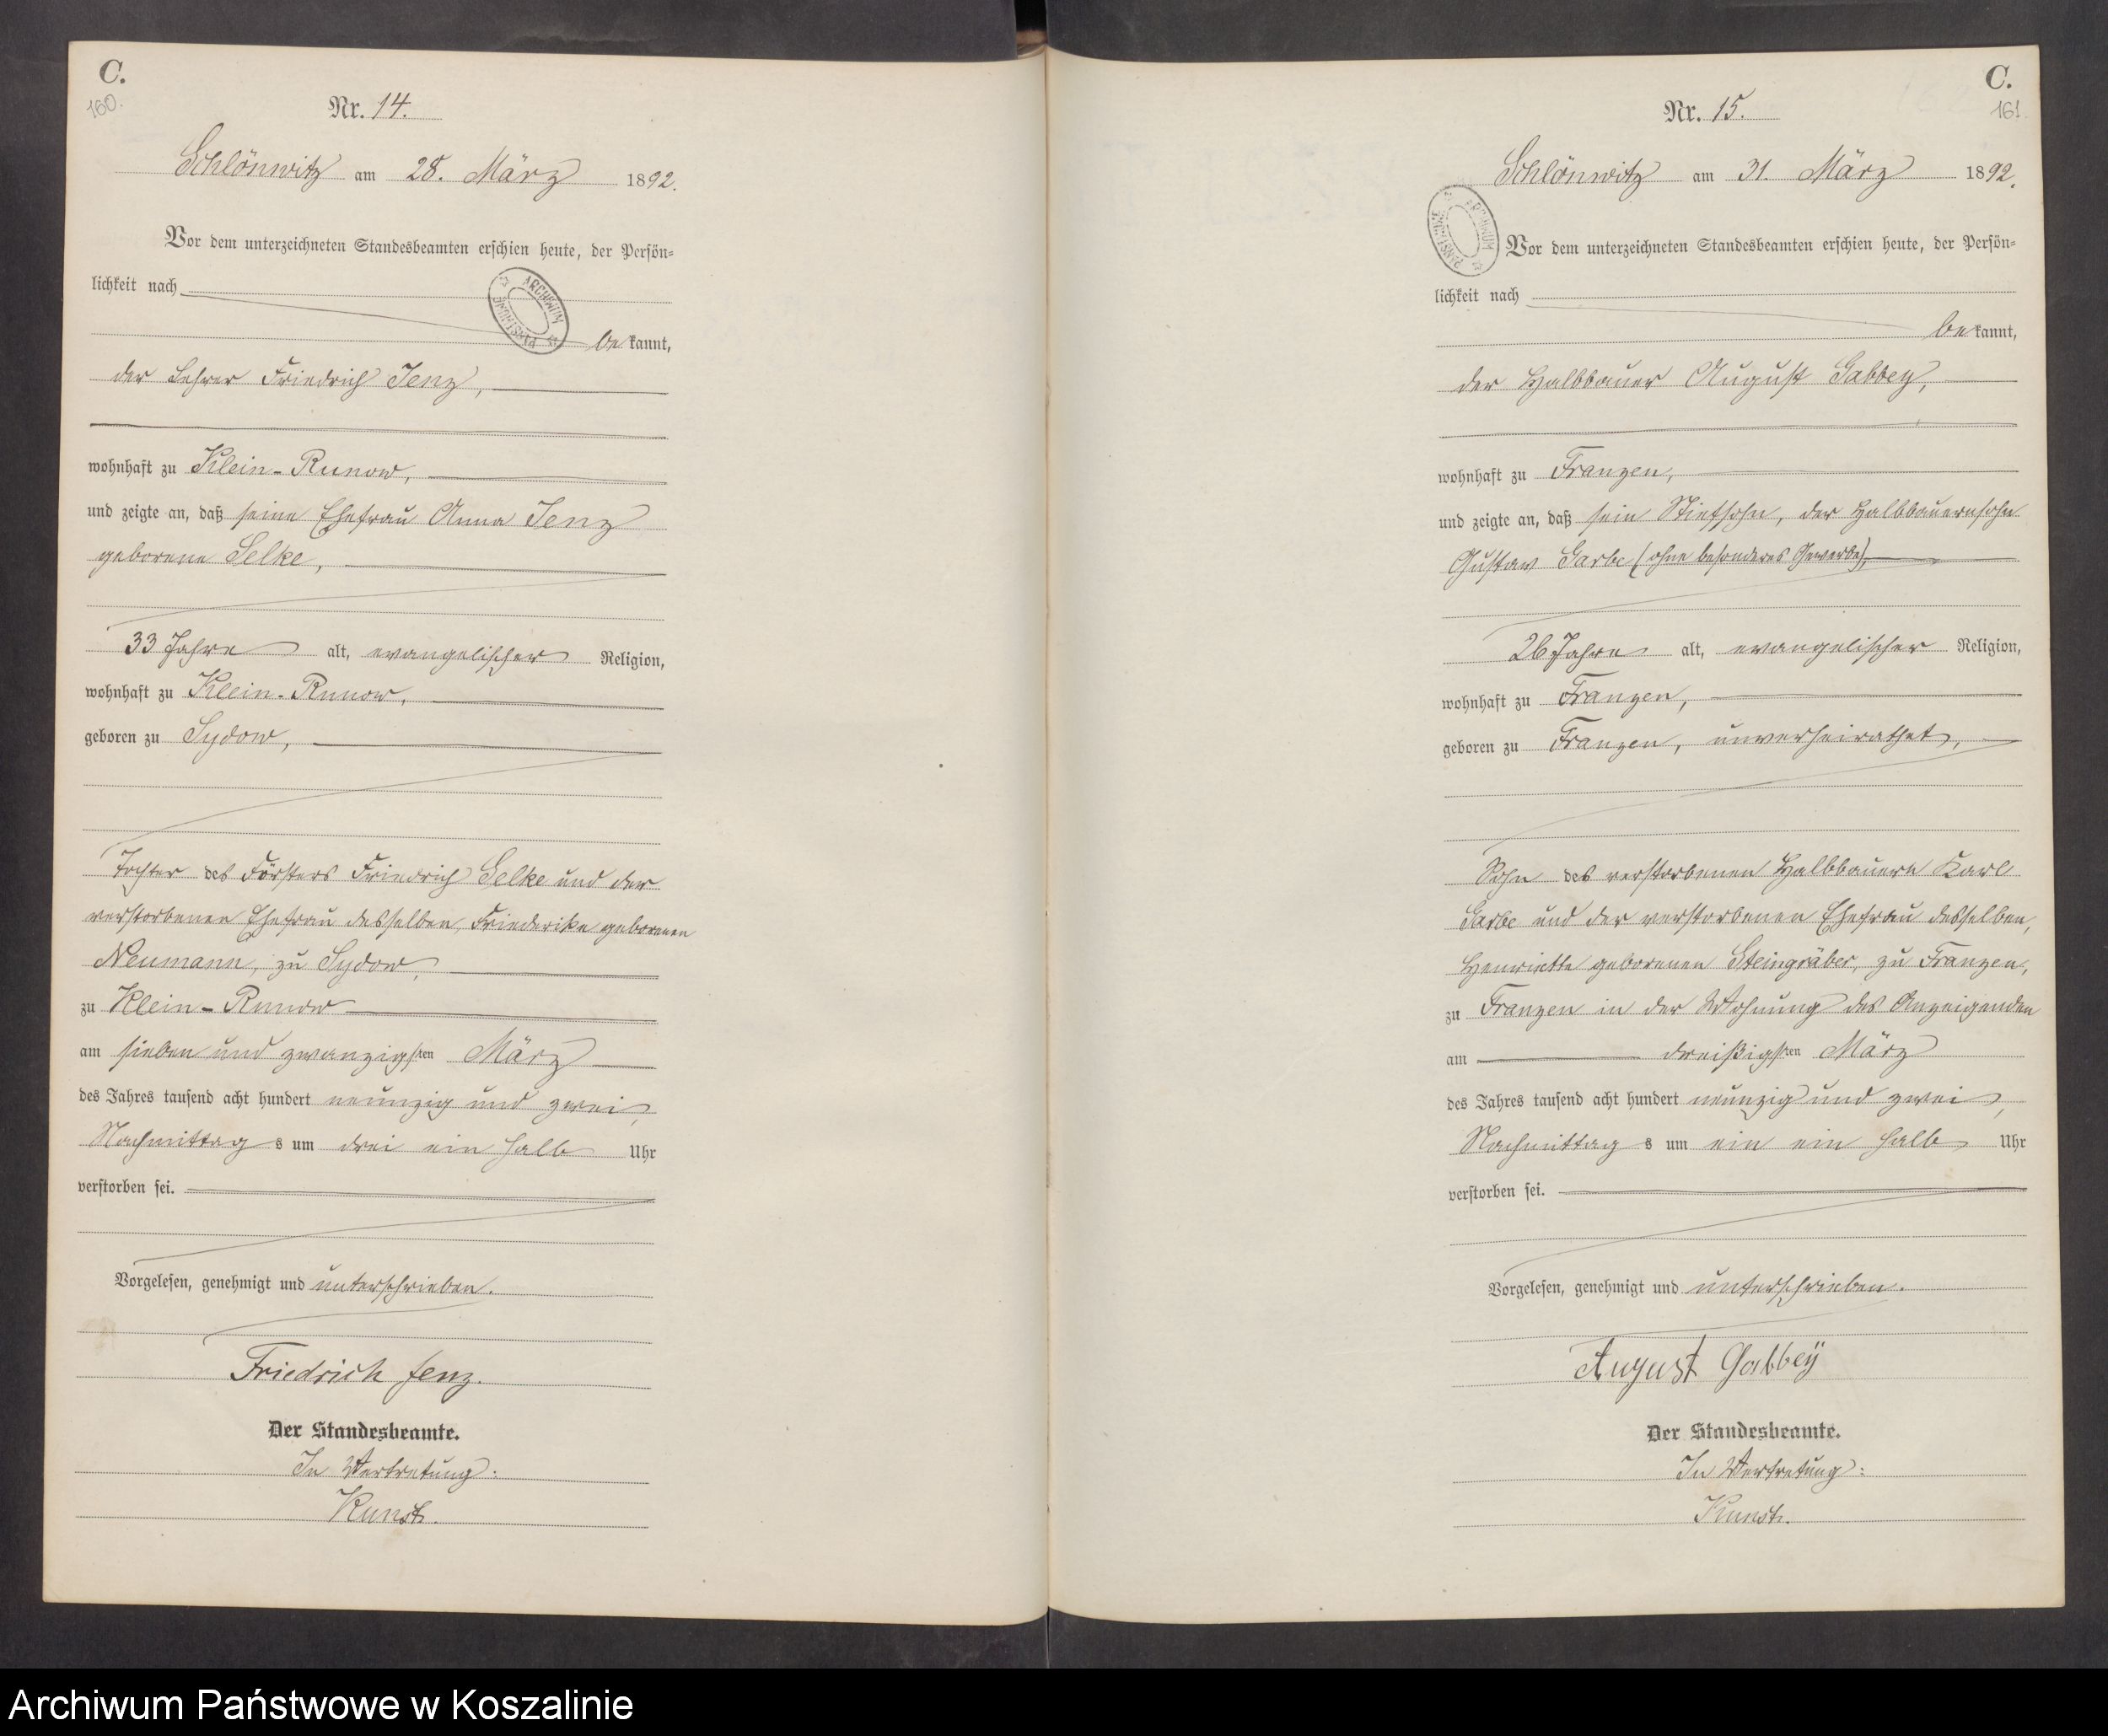 C.
160.
Nr. 14.
Schlönwitz am 28. März 1892.
Vor dem unterzeichneten Standesbeamten erschien heute, der Persön=
lichkeit nach
ARCHIWUM PAŃSTWOWE
be kannt,
der Lehrer Friedrich Jenz,
wohnhaft zu Klein-Runow,
und zeigte an, daß seine Ehefrau Anna Jenz
geborene Selke,
33 Jahre alt, evangelischer Religion,
wohnhaft zu Klein-Runow,
geboren zu Sydow,
Tochter des Försters Friedrich Selke und der
verstorbenen Ehefrau desselben, Friederike geborenen
Neumann, zu Sydow,
zu Klein-Runow
am sieben und zwanzigsten März
des Jahres tausend acht hundert neunzig und zwei,
Nachmittag s um drei ein halb Uhr
verstorben sei.
Vorgelesen, genehmigt und unterschrieben.
Friedrich Jenz.
Der Standesbeamte.
In Vertretung:
Kunst.
C.
161.
Nr. 15.
Schlönwitz am 31. März 1892.
ARCHIWUM PAŃSTWOWE
Vor dem unterzeichneten Standesbeamten erschien heute, der Persön=
lichkeit nach
be kannt,
der Halbbauer August Gabbey,
wohnhaft zu Franzen,
und zeigte an, daß sein Stiefsohn, der Halbbauernsohn
Gustav Garbe (ohne besonderes Gewerbe),
26 Jahre alt, evangelischer Religion,
wohnhaft zu Franzen,
geboren zu Franzen, unverheirathet,
Sohn des verstorbenen Halbbauern Karl
Garbe und der verstorbenen Ehefrau desselben,
Henriette geborenen Steingräber, zu Franzen,
zu Franzen in der Wohnung des Anzeigenden
am dreißigsten März
des Jahres tausend acht hundert neunzig und zwei,
Nachmittag s um ein ein halb Uhr
verstorben sei.
Vorgelesen, genehmigt und unterschrieben.
August Gabbeÿ
Der Standesbeamte.
In Vertretung:
Kunst.
Archiwum Państwowe w Koszalinie